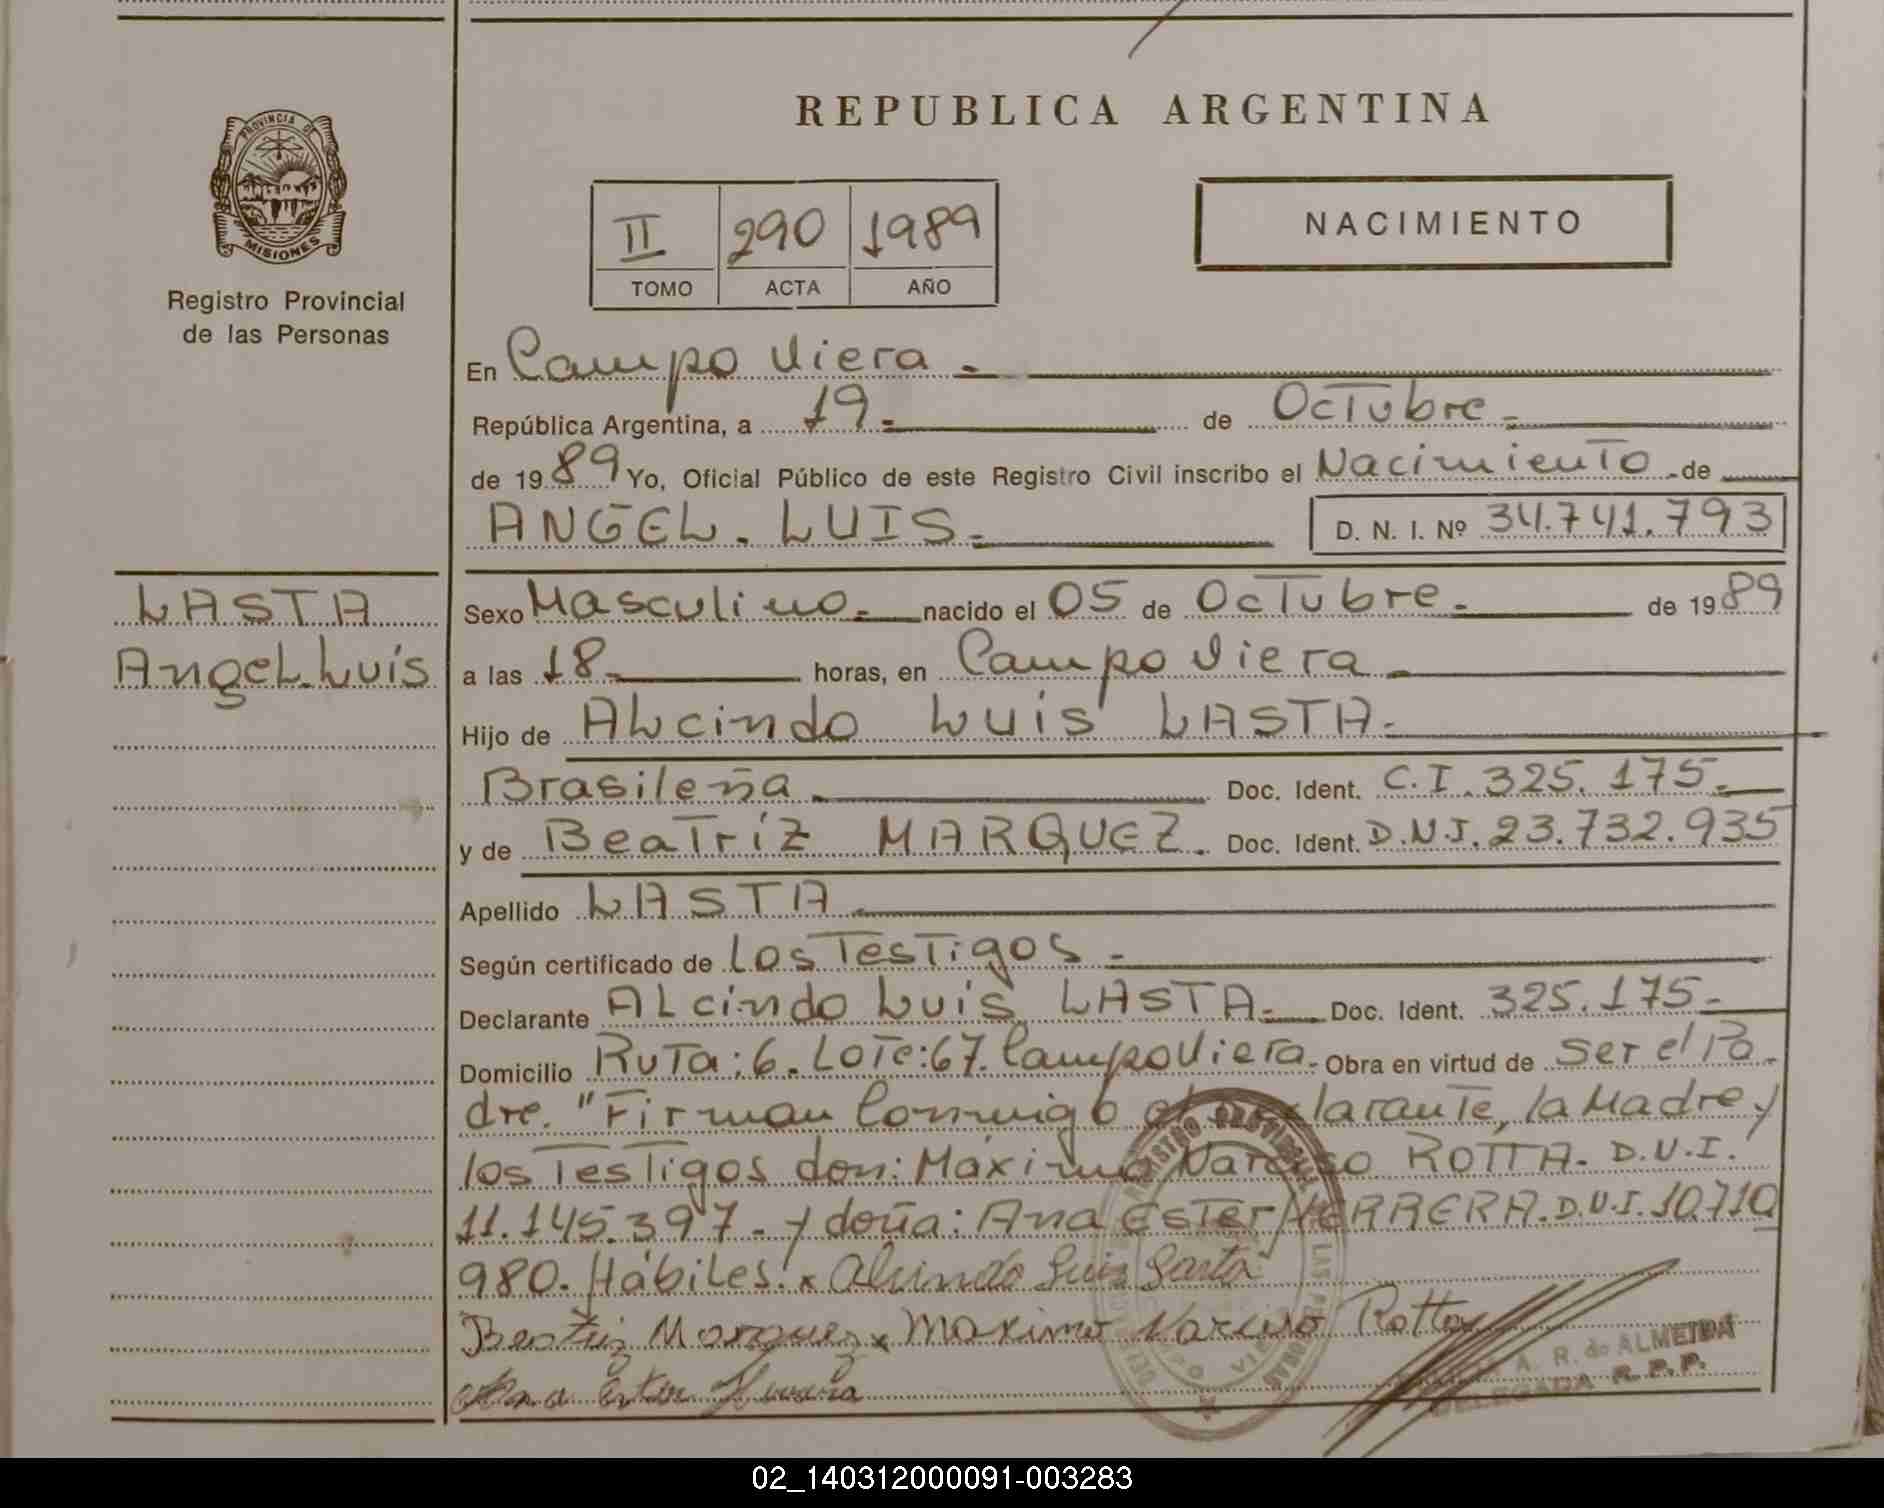 REPUBLICA ARGENTINA
PROVINCIA DE
MISIONES
Registro Provincial
de las Personas
II 290 1989
TOMO ACTA AÑO
NACIMIENTO
En Campo Viera.
República Argentina, a 19 de Octubre
de 1989 Yo, Oficial Público de este Registro Civil inscribo el Nacimiento de
ANGEL. LUIS. D. N. I. Nº 34.741.793
LASTA
Angel Luis
Sexo Masculino. nacido el 05 de Octubre. de 1989
a las 18 horas, en Campo Viera
Hijo de ALcindo Luis LASTA.
Brasileña Doc. Ident. C.I. 325.175.
y de Beatríz MARQUEZ. Doc. Ident. D.N.I. 23.732.935
Apellido LASTA
Según certificado de Los Testigos.
Declarante ALcindo Luis LASTA. Doc. Ident. 325.175.
Domicilio Ruta:6. Lote:67. Campo Viera. Obra en virtud de ser el Pa
dre. "Firman Conmigo el declarante, la Madre y
los Testigos don: Máximo Narciso ROTTA. D.N.I.
11.145.397. y doña: Ana Ester HERRERA. D.N.I. 10.710
980. Hábiles. x Alcindo Luis Lasta
Beatriz Marquez x Maximo Narciso Rotta
Ana Ester Herrera
A. R. de ALMEIDA
DELEGADA R.P.P.
02_140312000091-003283